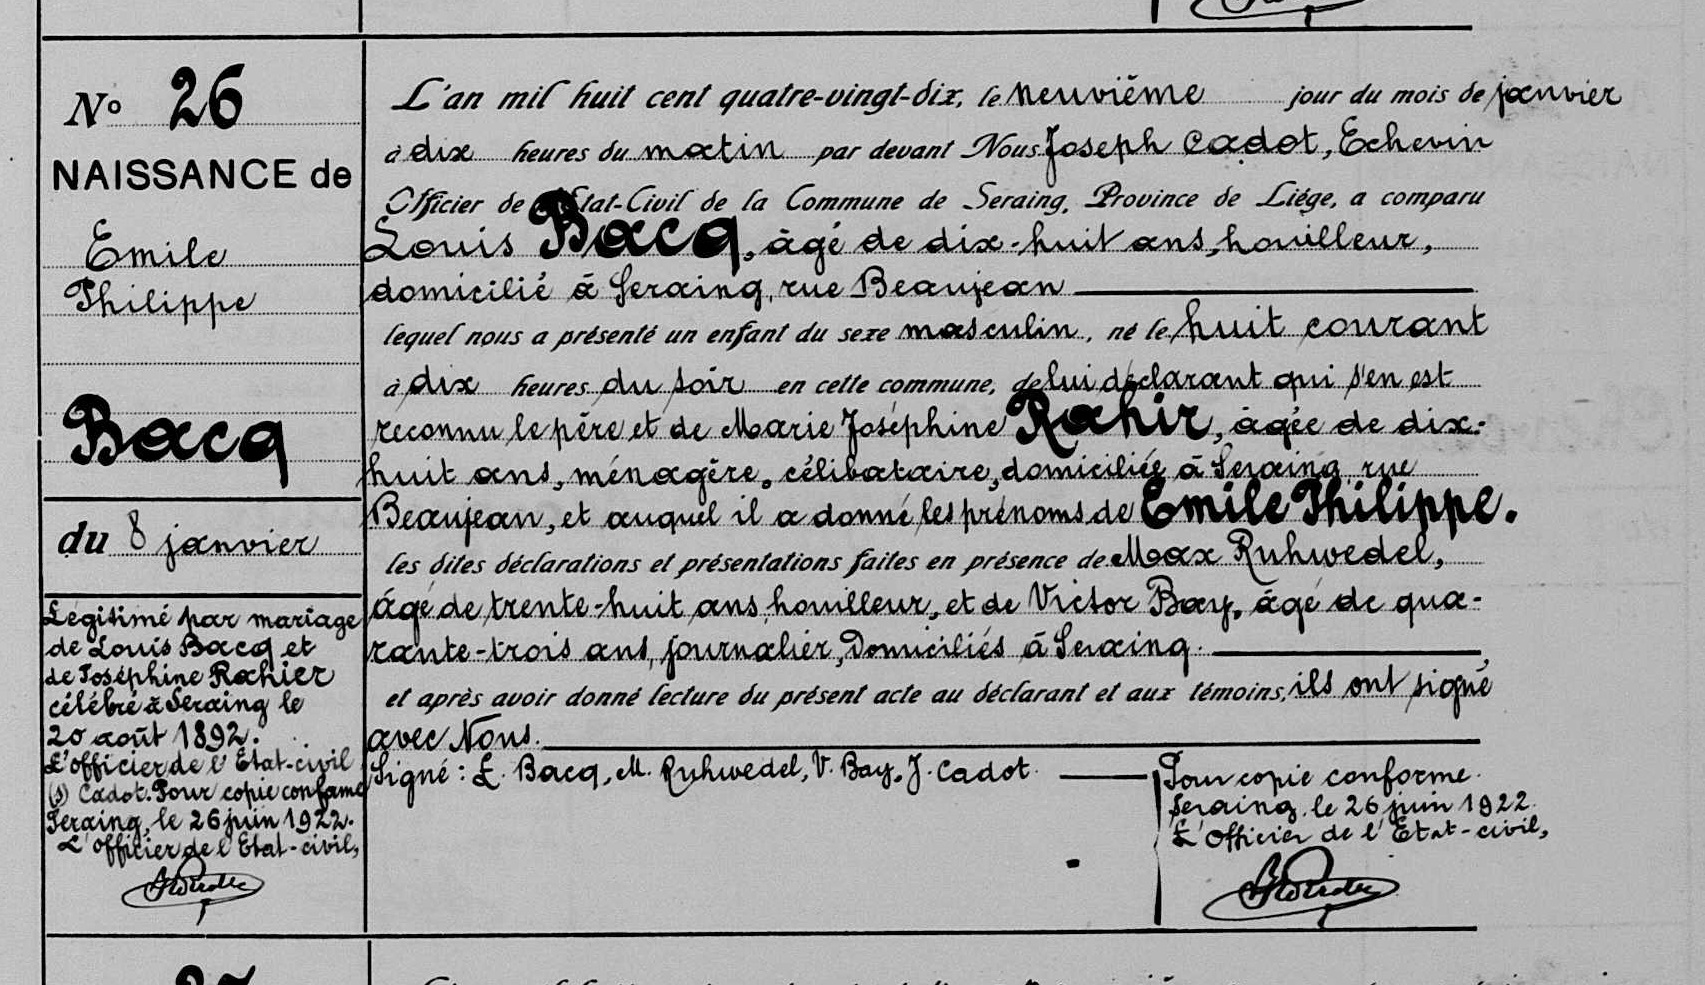 N° 26
NAISSANCE de
Emile
Philippe
Bacq
du 8 janvier
Légitimé par mariage
de Louis Bacq et
de Joséphine Rahier
célébré à Seraing le
20 août 1892.
L'officier de l'Etat-civil
(s) Cadot. Pour copie conforme
Seraing, le 26 juin 1922.
L'officier de l'Etat-civil,
L'an mil huit cent quatre-vingt-dix, le neuvième jour du mois de janvier
à dix heures du matin par devant Nous Joseph Cadot, Echevin
Officier de l'Etat-Civil de la Commune de Seraing, Province de Liége, a comparu
Louis Bacq, âgé de dix-huit ans, houilleur,
domicilié à Seraing, rue Beaujean
lequel nous a présenté un enfant du sexe masculin, né le huit courant
à dix heures du soir en cette commune, de lui déclarant qui s'en est
reconnu le père et de Marie Joséphine Rahir, âgée de dix-
huit ans, ménagère, célibataire, domiciliée à Seraing rue
Beaujean, et auquel il a donné les prénoms de Emile Philippe.
les dites déclarations et présentations faites en présence de Max Ruhwedel,
âgé de trente-huit ans houilleur, et de Victor Bay, âgé de qua-
rante-trois ans, journalier, domiciliés à Seraing.
et après avoir donné lecture du présent acte au déclarant et aux témoins, ils ont signé
avec Nous.
Signé : L. Bacq, M. Ruhwedel, V. Bay, J. Cadot.
Pour copie conforme.
Seraing, le 26 juin 1922.
L'Officier de l'Etat-civil,